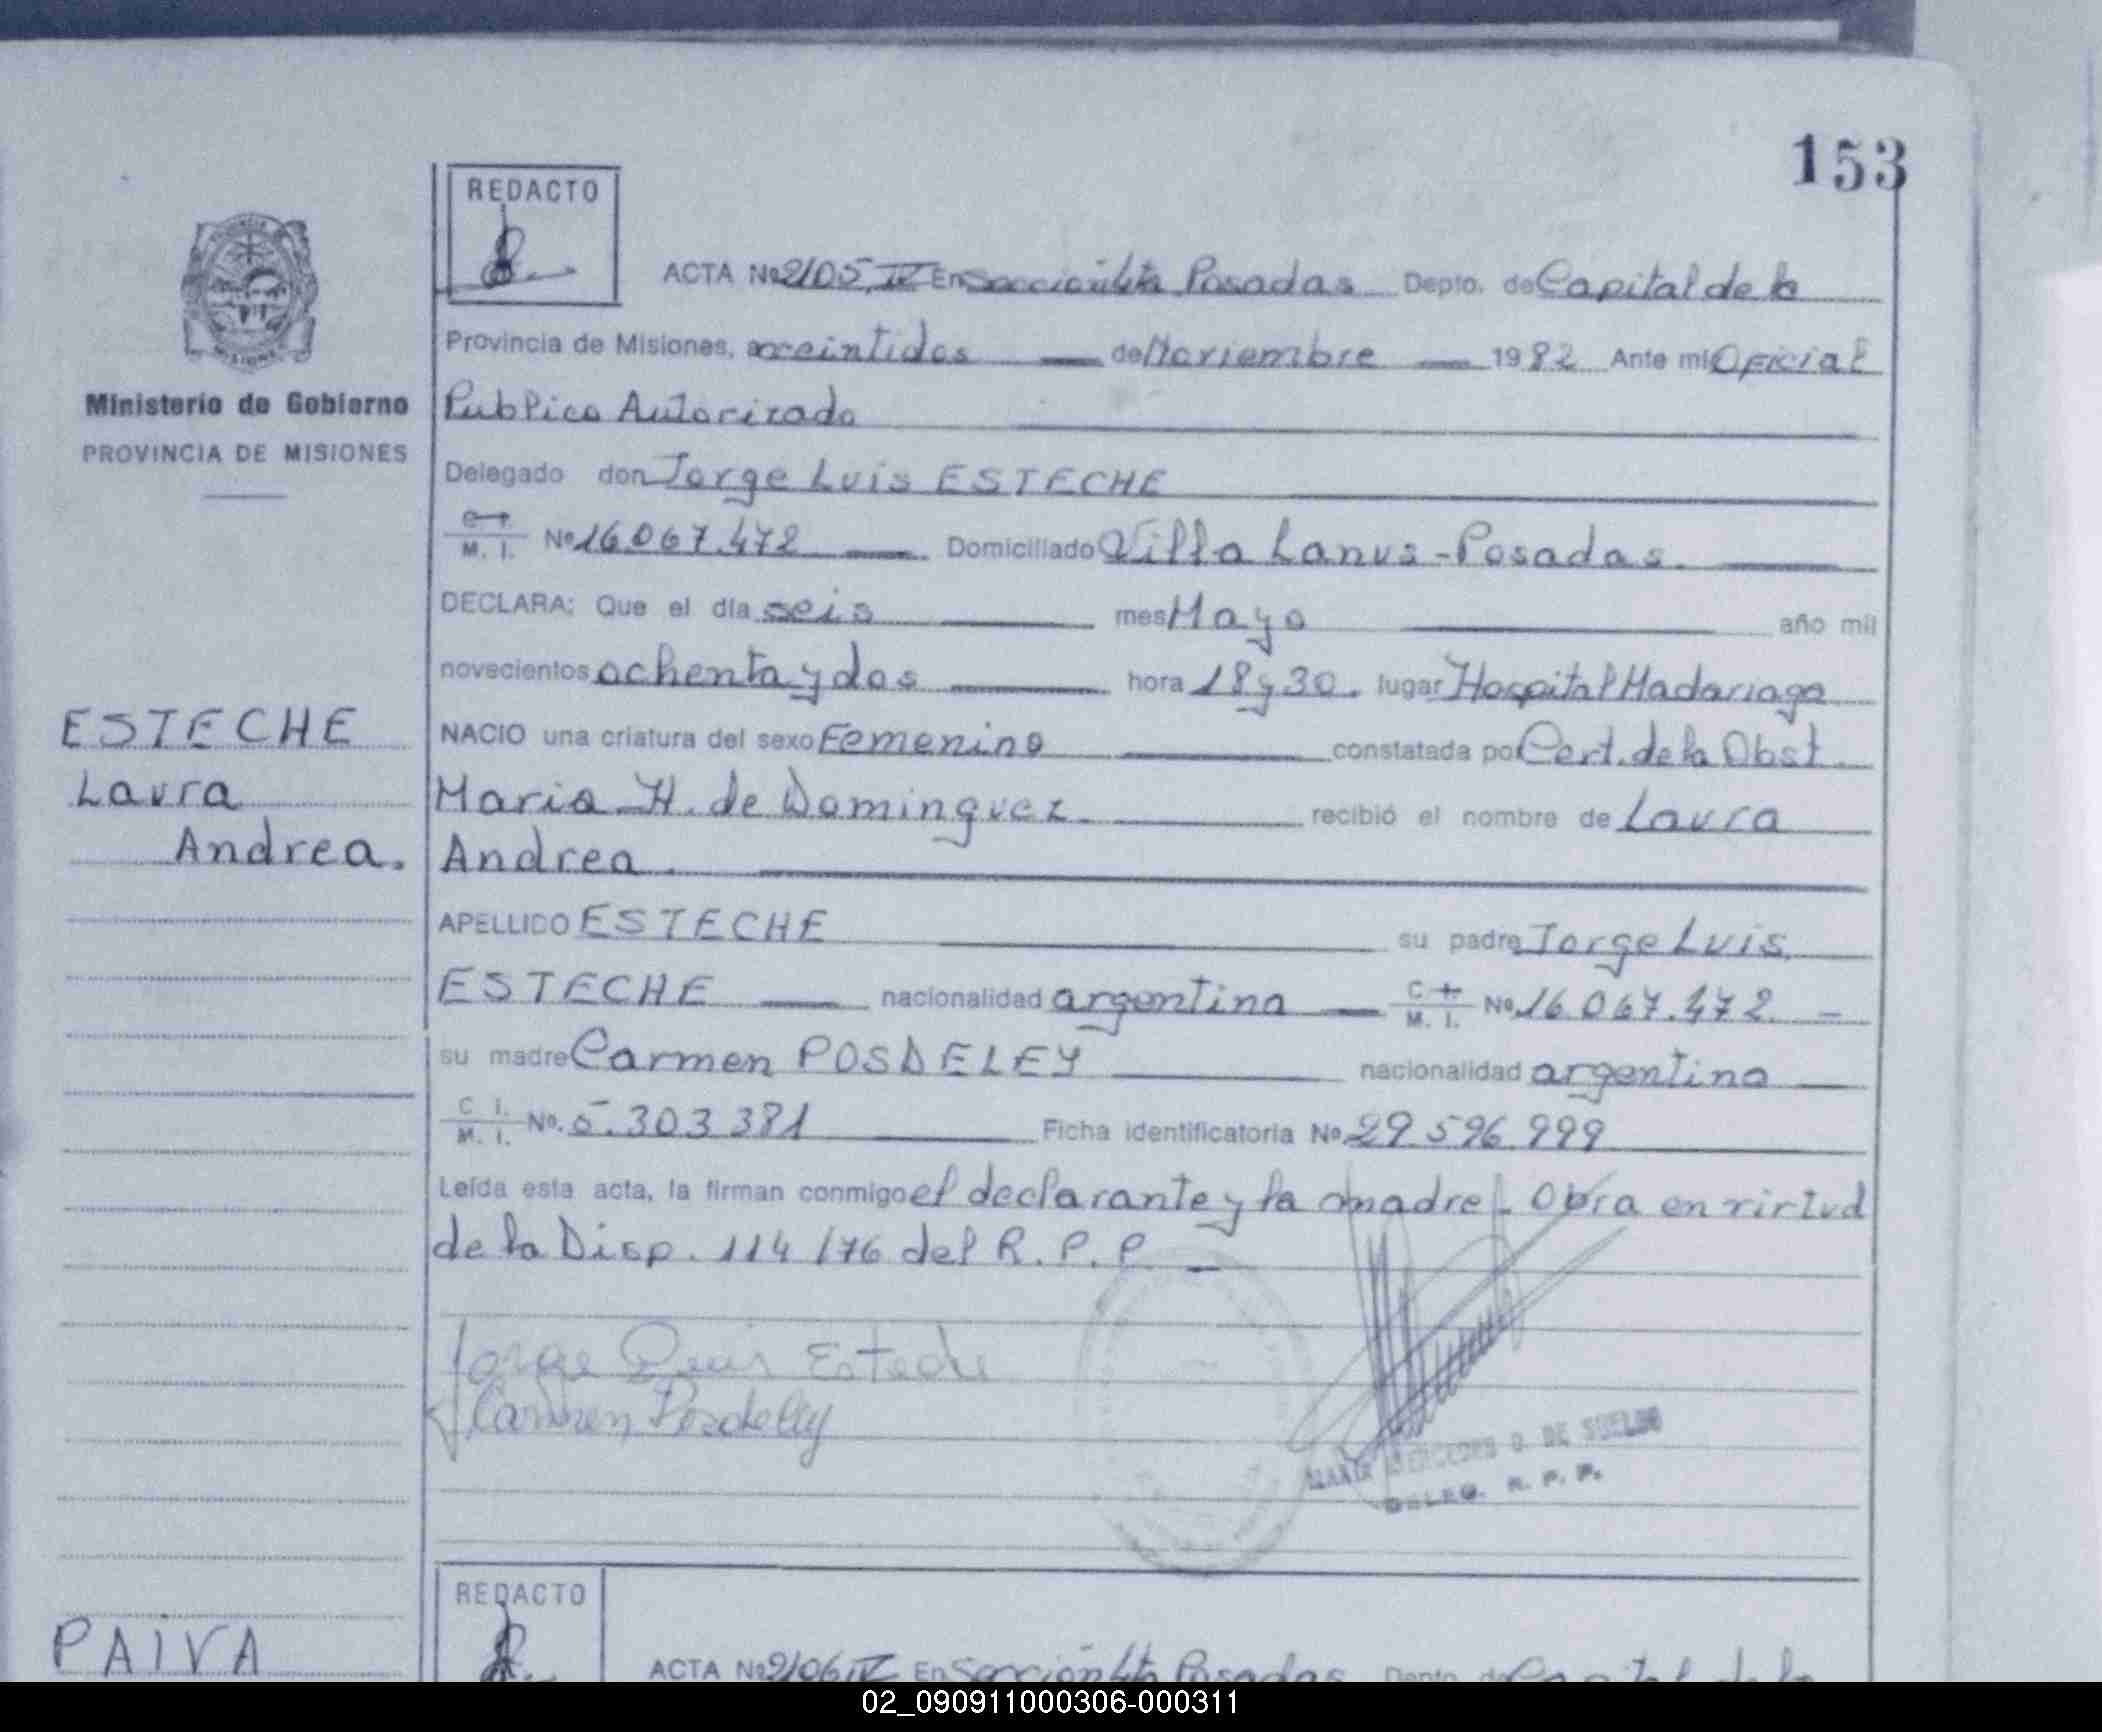 153
REDACTO
ACTA Nº 2105, IV En Sección 4ta Posadas Depto. de Capital de la
Provincia de Misiones, a veintidos de Noviembre 1982 Ante mi Oficial
Publico Autorizado
Ministerio de Gobierno
PROVINCIA DE MISIONES
Delegado don Jorge Luis ESTECHE
M. I. Nº 16.067.472 Domiciliado Villa Lanus - Posadas.
DECLARA: Que el día seis mes Mayo año mil
novecientos ochenta y dos hora 18 y 30. lugar Hospital Madariaga
ESTECHE
Laura
Andrea.
NACIO una criatura del sexo Femenino constatada por Cert. de la Obst.
Maria H. de Dominguez recibió el nombre de Laura
Andrea.
APELLIDO ESTECHE su padre Jorge Luis
ESTECHE nacionalidad argentina C. I. M. I. Nº 16.067.472. -
su madre Carmen POSDELEY nacionalidad argentina
C. I. M. I. No. 5.303.381 Ficha identificatoria Nº 29.596.999
Leída esta acta, la firman conmigo el declarante y la madre - Obra en virtud
de la Disp. 114/76 del R. P. P. -
Jorge Luis Esteche
Carmen Posdeley
MARIA MERCEDES G. DE SUELDO
DELEG. R. P. P.
REDACTO
PAIVA
ACTA Nº 2106 IV En Sección 4ta Posadas Depto. de Capital de la
02_090911000306-000311